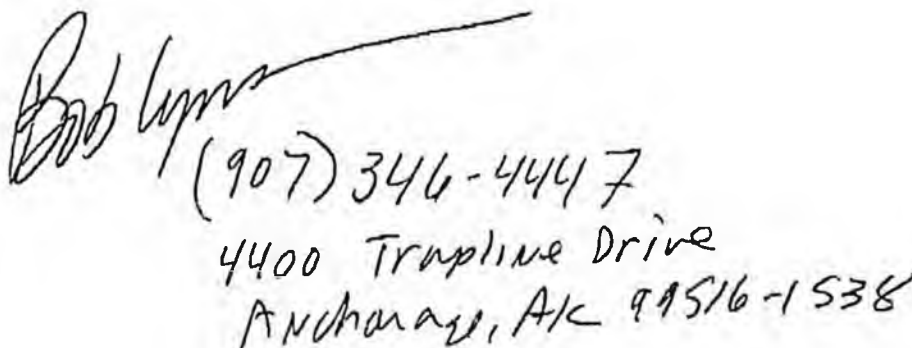 Bob Lynn
(907) 346-4447
4400 Trapline Drive
Anchorage, AK 99516-1538